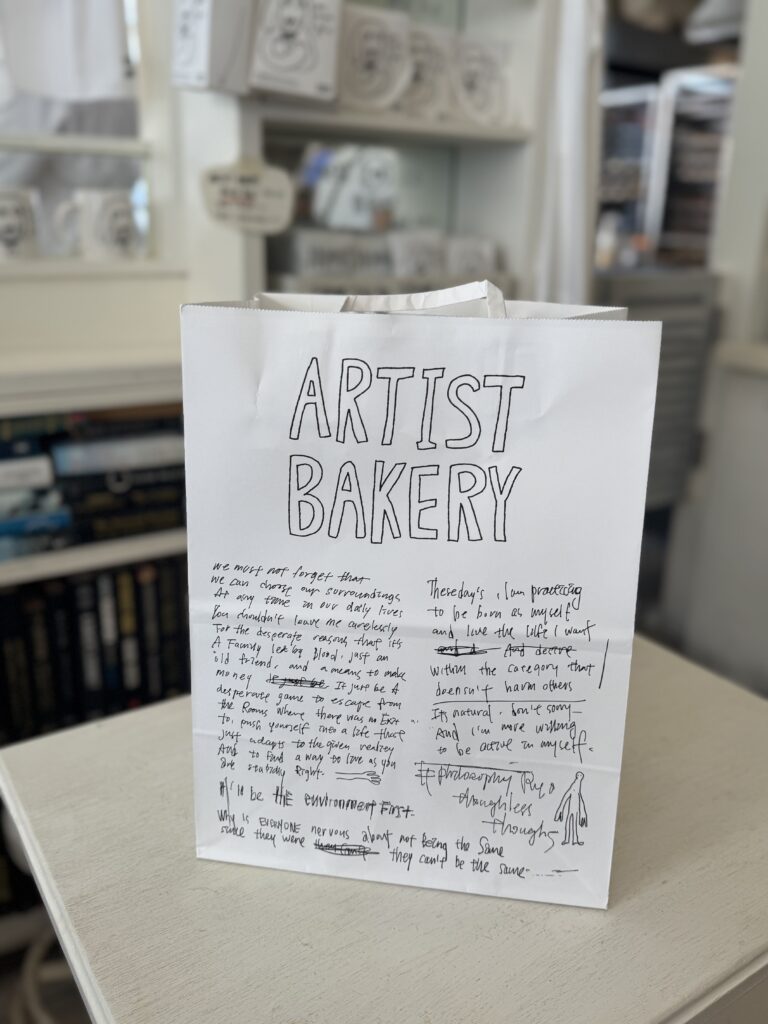 ARTIST
BAKERY
we must not forget that
we can choose our surroundings
At any time in our daily lives
You shouldn't leave me carelessly
For the desperate reasons that it's
A Family led by Blood, just an
old friend, and a means to make
money It just be A
desperate game to escape from
the Rooms where there was no Exit
to push yourself into a life that
just adapts to the given reality
And to find a way to live as you
are Right.
be tHE environment First.
Why is EVERYONE nervous about not Being the Same
since they were they can't be the same
Theseday's, I am practicing
to be born as myself
and live the life I want
And desire
within the category that
doensn't harm others
Its natural. Don't sorry
And I'm more willing
to be active in myself.
# philosophy Ryo
thoughless
thoughts